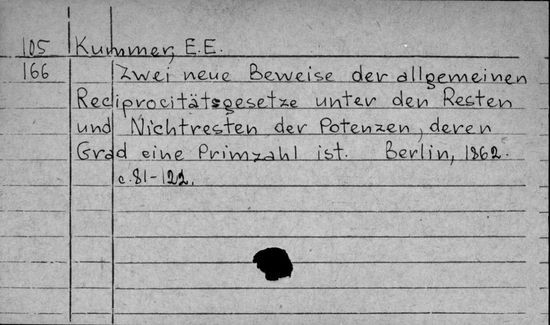 105 Kummer, E.E.
166 Zwei neue Beweise der allgemeinen
Reciprocitätsgesetze unter den Resten
und Nichtresten der Potenzen, deren
Grad eine Primzahl ist. Berlin, 1862.
c. 81-122.